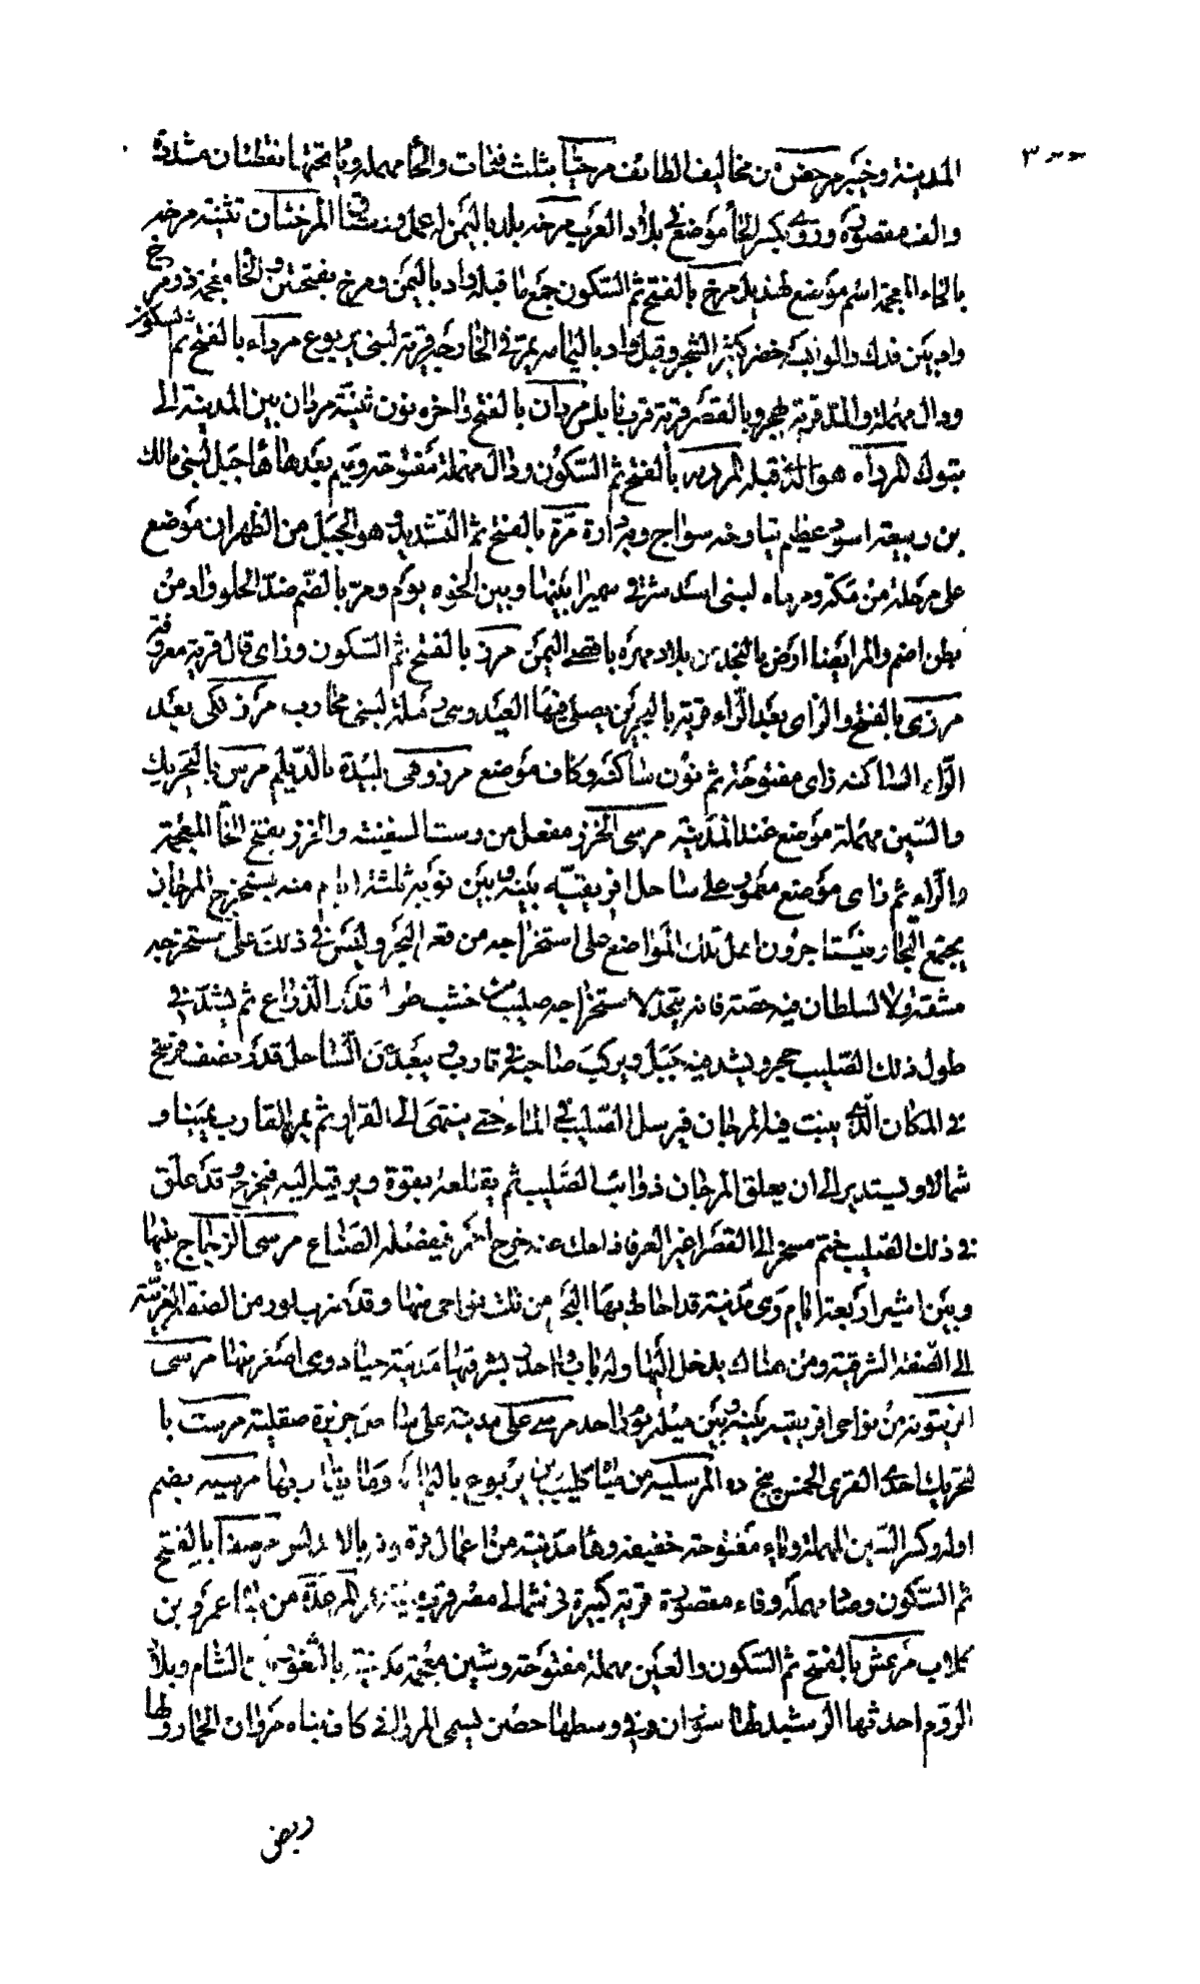 ٣٠٠
المدينة وخيبر مرحض من مخاليف الطائف مرحيا بثلث فتحات والحا مهملة ويا تحتها نقطتان مشددة
والف مقصورة وروى بكسر الحاء موضع فى بلاد العرب مرخه بلد باليمن له عمل ومنبر المرختان تثنيه مرخه
بالخاء المعجمة اسم موضع لهذيل مرخ بالفتح ثم السكون جمع ما قبله واد باليمن ومرخ بفتحتين والخاء معجمة ذو مرخ
واد بين فدك والوابشية خضر كثير الشجر وقيل واد باليمامه يمر فى الخارجة قرية لبنى يربوع مرداء بالفتح ثم السكون
ودال مهملة والمد قرية بهجر وبالقصر قرية قرب نابلس مردان بالفتح واخره نون ثنية مردان بين المدينة الى
تبوك المرداه هو الذى قبله المردمه بالفتح ثم السكون ودال مهملة مفتوحة وميم بعدها ها جبل لبنى مالك
بن ربيعة اسود عظيم يناوحه سواج ومرارة مرّة بالفتح ثم التشديد هو الجبل من الظهران موضع
على مرحلة من مكة ومر ماء لبنى اسد شرقى سميرا بينها وبين الخوه يوم ومر بالضم ضدّ الحلو واد من
بطن اضم والمر ايضا ارض بالنجد من بلاد مهره باقصى اليمن مرز بالفتح ثم السكون وزاى قال قرية معروفة
مرزى بالفتح والزاى بعد الراء قرية بالبحرين يصلى فيها العيد وهى رملة لبنى محارب مرزنكى بعد
الراء الساكنه زاى مفتوحة ثم نون ساكنة وكاف موضع مرزو وهى بليدة بالديلم مرس بالتحريك
والسين مهملة موضع عند المدينة مرسى الخرز مفعل من رست السفينة والخرز بفتح الخا المعجمة
والراء ثم زاى موضع معمور على ساحل افريقيه بينه وبين نوبه ثلثة ايام منه يستخرج المرجان
يجتمع التجار فيستاجرون اهل تلك المواضع على استخراجه من قعر البحر وليس فى ذلك على مستخرجه
مشقة ولا لسلطان فيه حصة فانه يتخذ لاستخراجه صليب من خشب طوله قدر الذراع ثم يشد فى
طول ذلك الصليب حجر ويشد فيه حبل ويركب صاحبه فى قارب ويبعد عن الساحل قدر نصف فرسخ
فى المكان الذى ينبت فيه المرجان فيرسل الصليب فى الماء حتى ينتهى الى القرار ثم يمر القارب يمينا و
شمالا ويستدير الى ان يعلق المرجان ذوائب الصليب ثم يقتلعه بقوة ويرقيه اليه فيخرج وقد علق
فى ذلك الصليب جسم مسخر الى القصر اغبر فاذا حك عنه خرج احمر فيفضله الصناع مرسى الزجاج بينها
وبين اشير اربعة ايام وهى مدينة قد احاط بها البحر من ثلث نواحى منها وقد ضرب بسور من الضفة الغربية
الى الضفة الشرقية ومن هناك يدخل اليها وله باب واحد بشرقيها مدينة جيجا وهى اصغر منها مرسى
الزيتونه من نواحى افريقيه بينه وبين ميله يوم واحد مرسى على مدينة على ساحل جزيرة صقلية مرست با
لتحريك احدى القرى الخمس بنج ده المرسليه من مياه كليب بن يربوع باليمامه وما يقاربها مرسيه بضم
اوله وكسر السين المهملة وياء مفتوحة خفيفه وها مدينة من اعمال تدمير بالاندلس مرصفا بالفتح
ثم السكون وصاد مهملة وفاء مقصورة قرية كبيرة فى شمالى مصر قرب المرغدّه من مياه عمرو بن
كلاب مرعش بالفتح ثم السكون والعين مهملة مفتوحة وشين معجمة مدينة بالثغور بين الشام وبلاد
الروم احدثها الرشيد لها سوران وفى وسطها حصن يسمى المروانى كان بناه مروان الحمار ولها
ربض